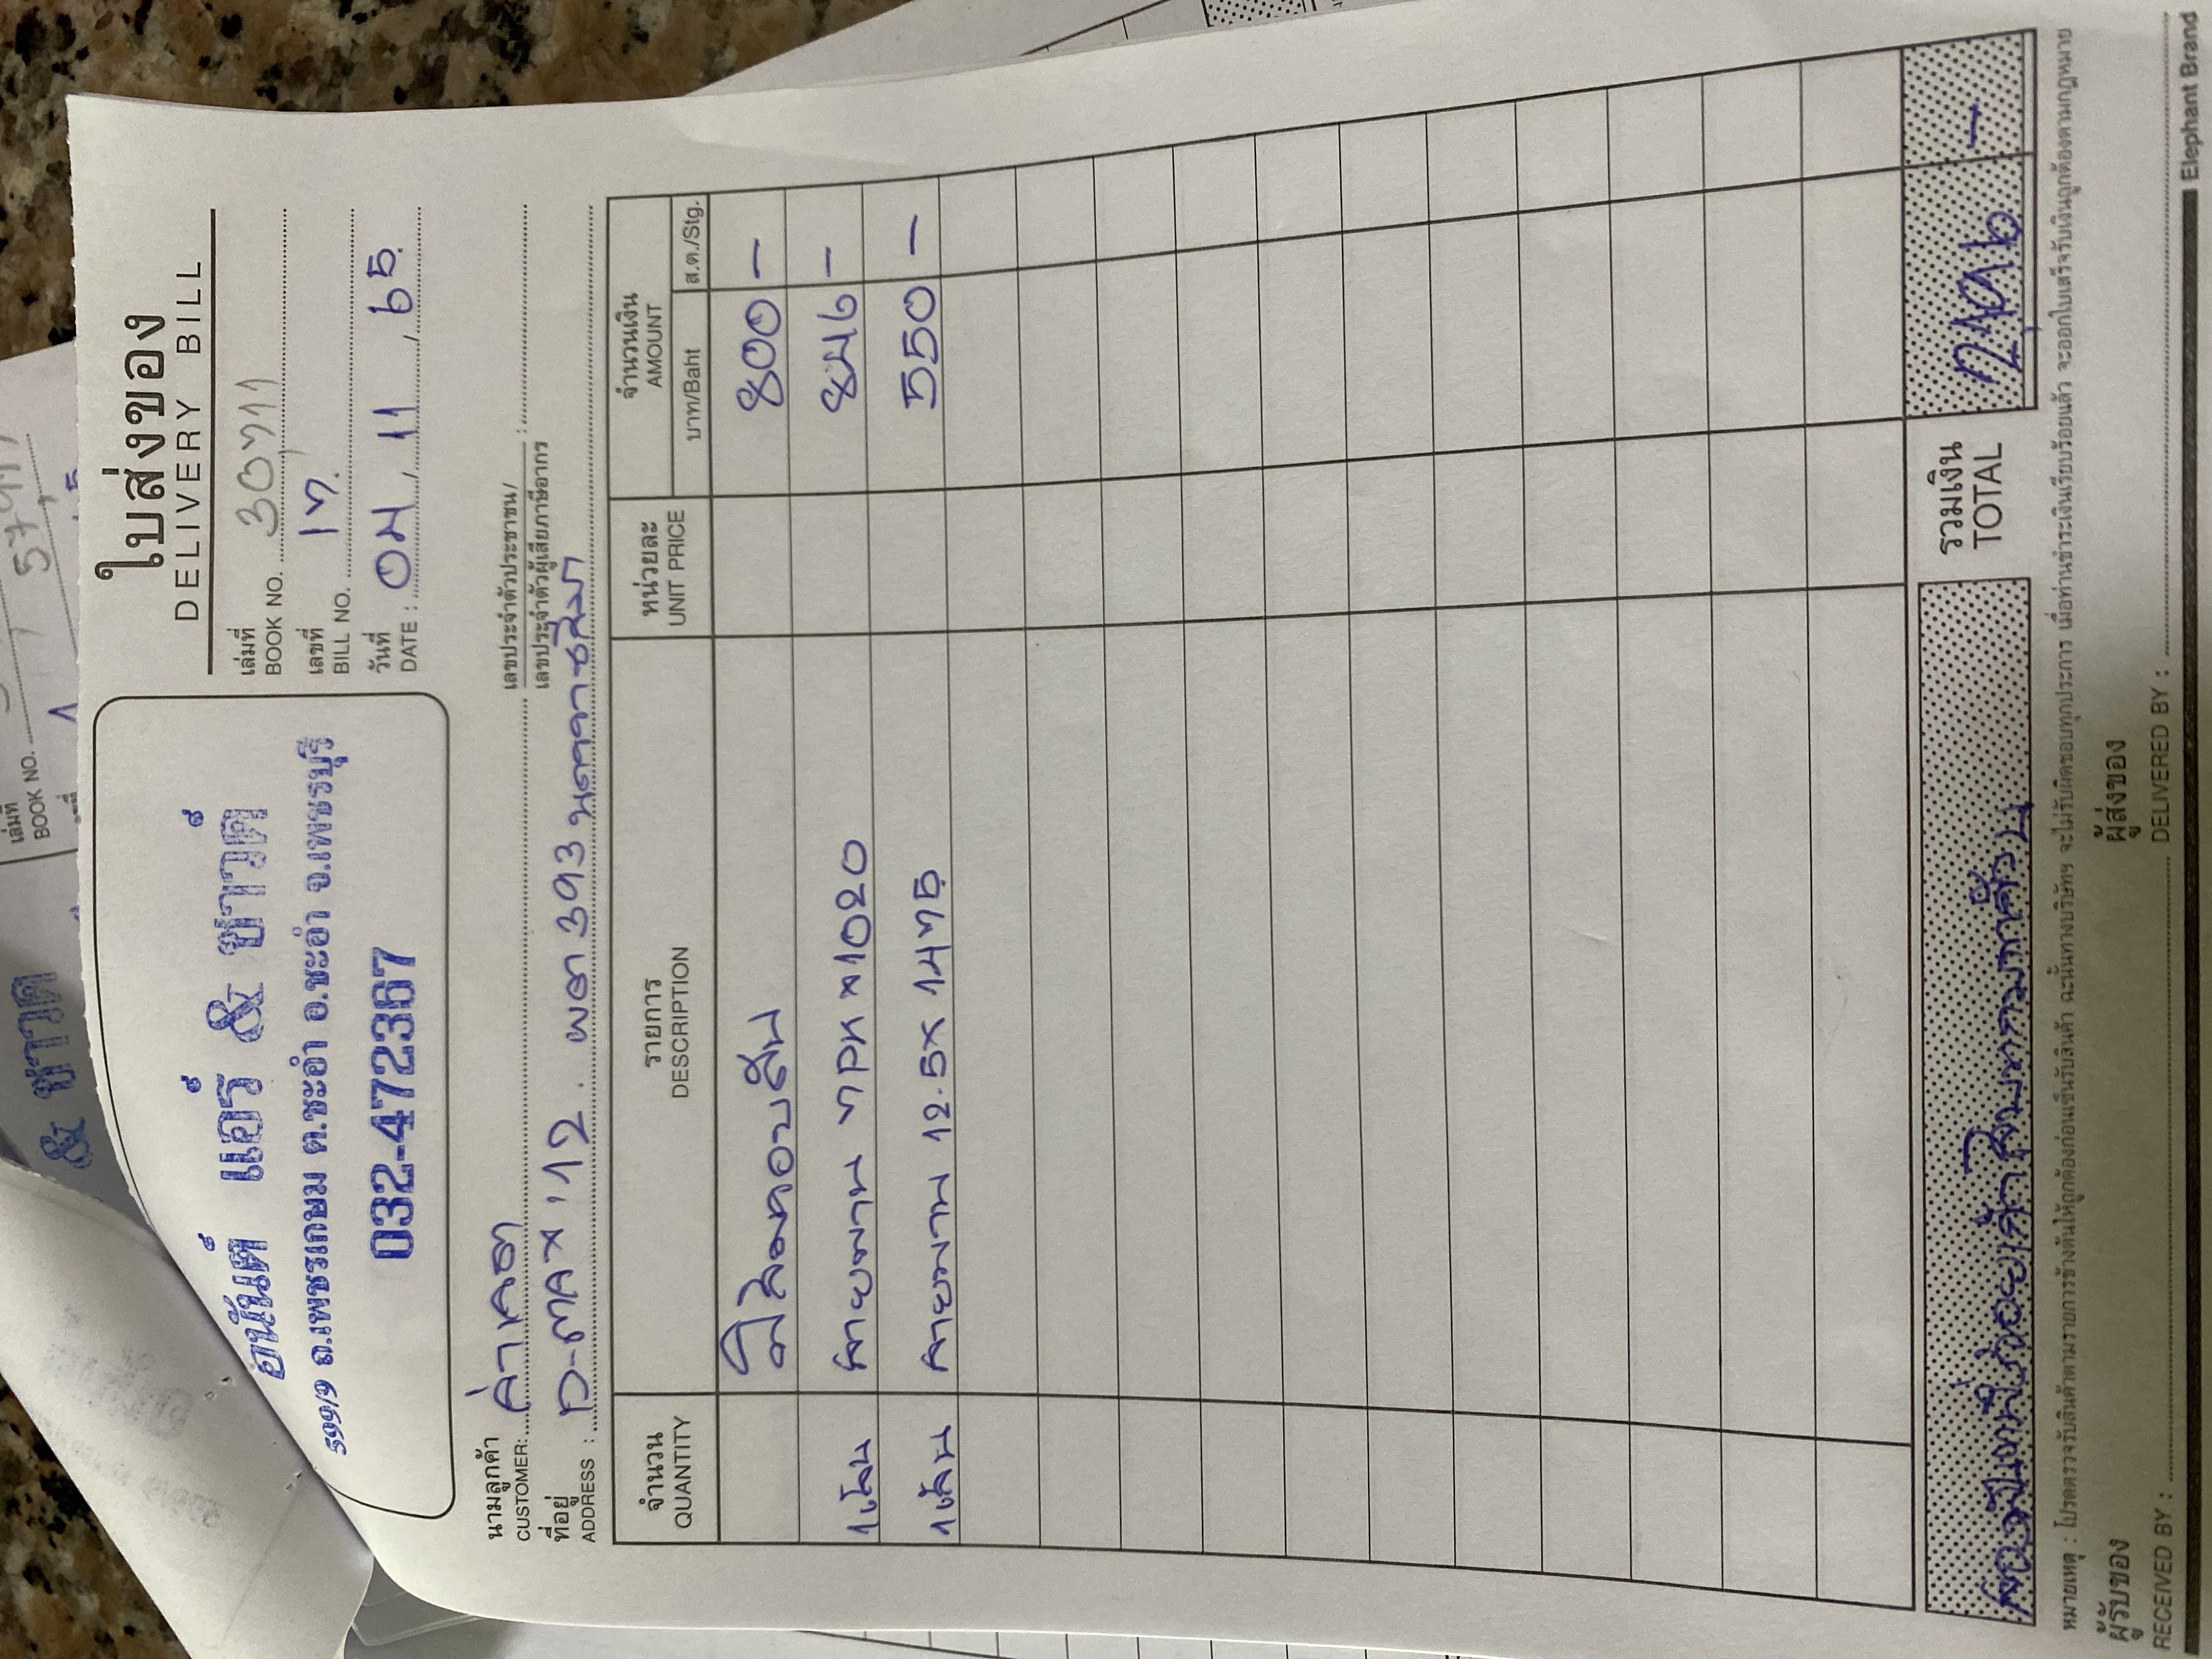 ใบส่งของ
DELIVERY BILL
อนันต์ แอร์ & ซาวด์
599/1 ถ.เพชรเกษม ต.ชะอำ อ.ชะอำ จ.เพชรบุรี
032-472367
เล่มที่
BOOK NO.
เลขที่
BILL NO. 17.
วันที่
DATE : 04, 11, 65
นามลูกค้า
CUSTOMER:
เลขประจำตัวประชาชน/
เลขประจำตัวผู้เสียภาษีอากร
ที่อยู่
ADDRESS : D-MAX '12. ผต 393 นครราชสีมา
จำนวน
QUANTITY
รายการ
DESCRIPTION
หน่วยละ
UNIT PRICE
จำนวนเงิน
AMOUNT
บาท/Baht
ส.ต./Stg.
800 -
1 เส้น สายพาน 7PK x 1020 846 -
1 เส้น สายพาน 12.5 x 1475 550 -
รวมเงิน
TOTAL
สองพันหนึ่งร้อยเก้าสิบหกบาทถ้วน
2,196 -
หมายเหตุ : โปรดตรวจรับสินค้าตามรายการข้างต้นให้ถูกต้องก่อนเซ็นรับสินค้า ฉะนั้นทางบริษัทฯ จะไม่รับผิดชอบทุกประการ เมื่อท่านชำระเงินเรียบร้อยแล้ว จะออกใบเสร็จรับเงินถูกต้องตามกฎหมาย
ผู้รับของ
RECEIVED BY :
ผู้ส่งของ
DELIVERED BY :
Elephant Brand
& ซาวด์
เล่มที่
BOOK NO.